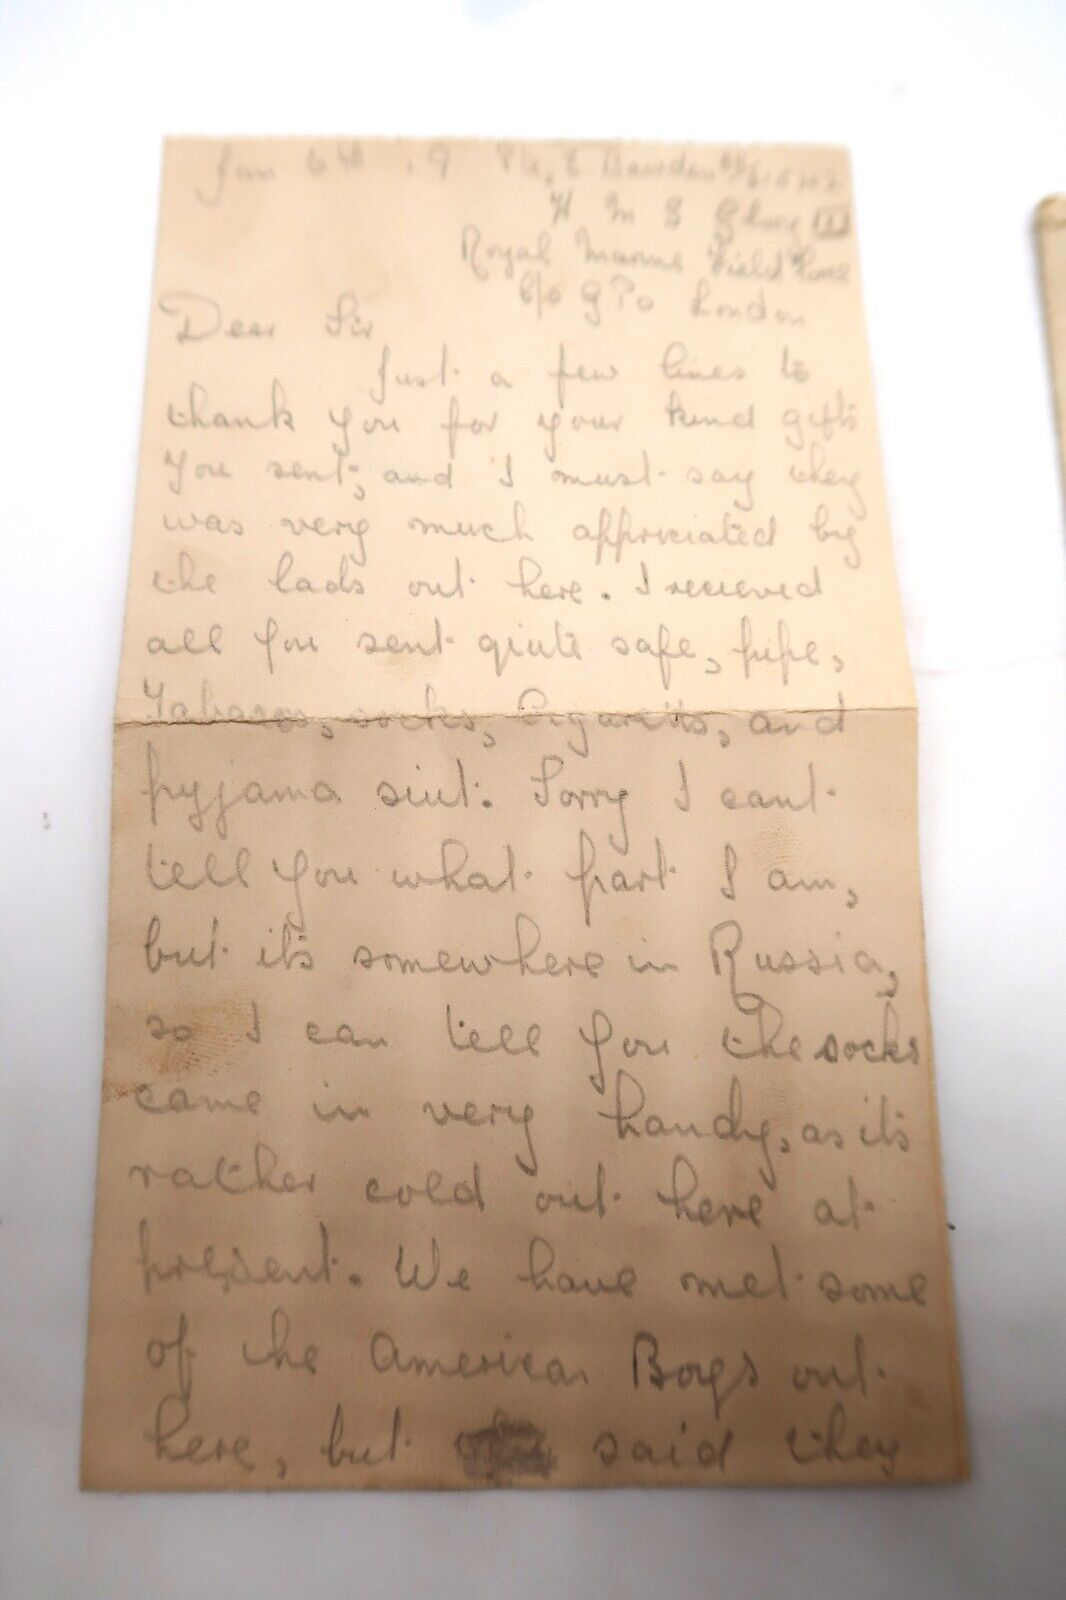 Jan 6th 19 Pte, E Bowden
H M S Glory III
Royal Marine Field Force
C/o G P o London
Dear Sir
Just a few lines to
thank you for your kind gifts
you sent, and I must say they
was very much appriciated by
the lads out here. I recieved
all you sent qiute safe, pipe,
Tabacco, socks, Cigaretts, and
pyjama siut. Sorry I cant
tell you what part I am,
but it's somewhere in Russia,
so I can tell you the socks
came in very handy, as it's
rather cold out here at
present. We have met some
of the American Boys out
here, but said they